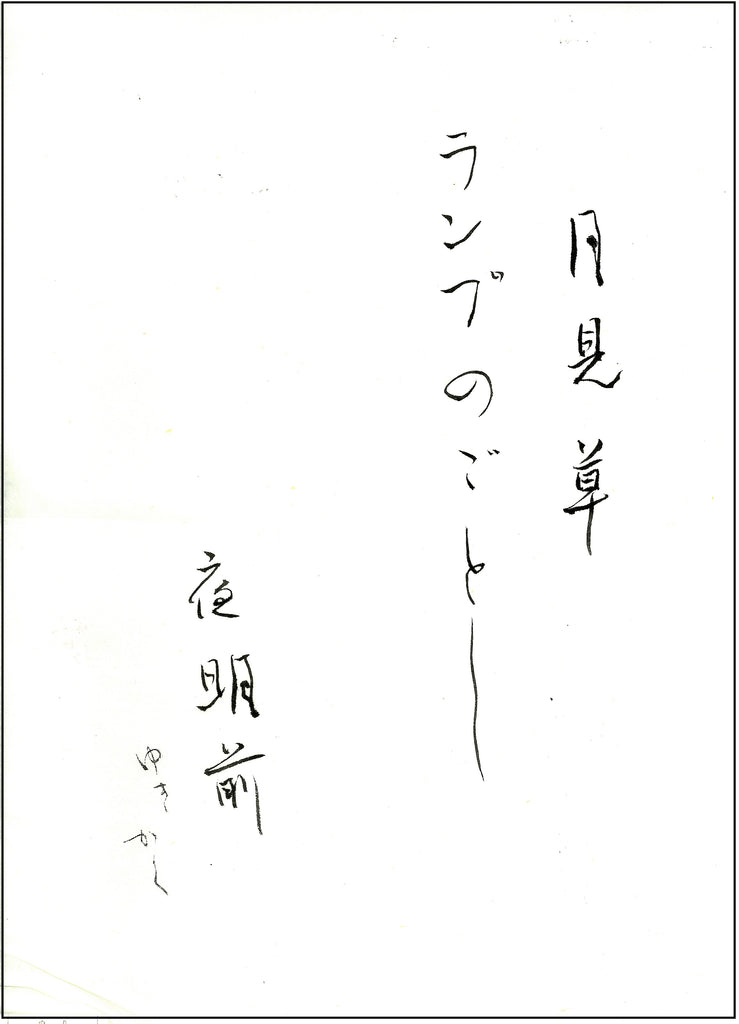 月見草
ランプのごとし
夜明前
ゆきかく